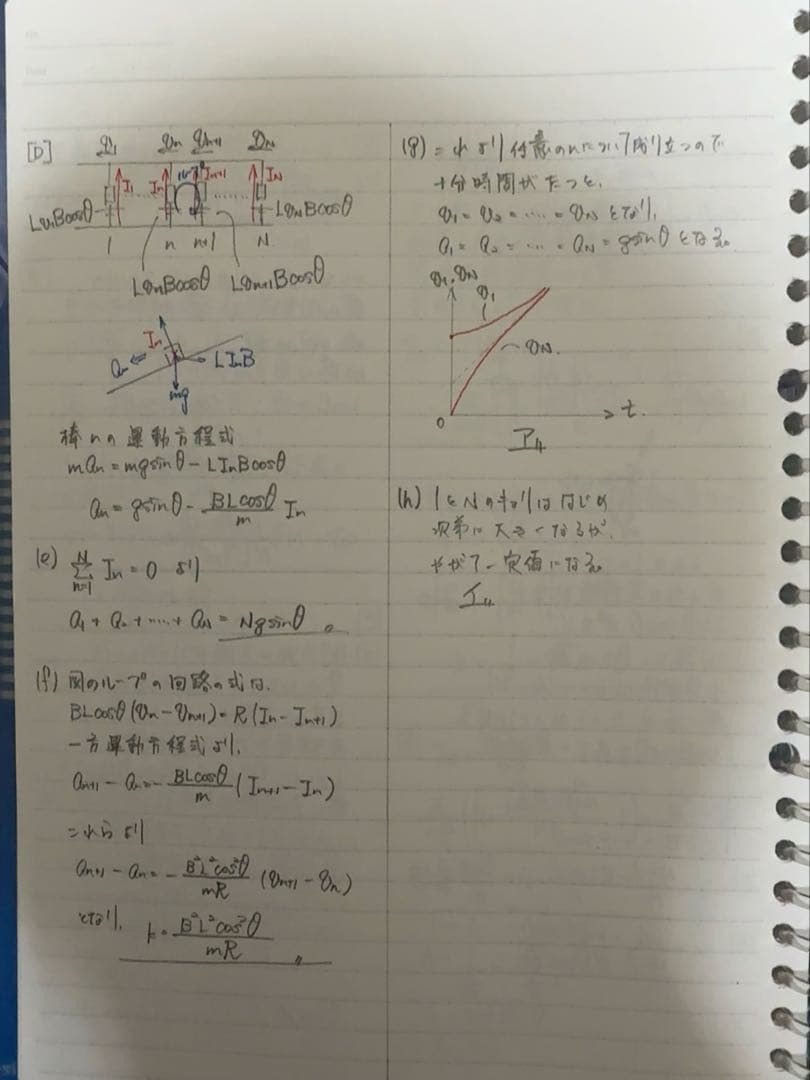 [D]
v₁ vₙ vₙ₊₁ v_N
I₁ Iₙ Iₙ₊₁ I_N
Lv₁Bcosθ Lv_NBcosθ
1 n n+1 N
LvₙBcosθ Lvₙ₊₁Bcosθ
Iₙ
aₙ LIₙB
mg
棒nの運動方程式
maₙ = mgsinθ - LIₙBcosθ
aₙ = gsinθ - BLcosθ/m Iₙ
(e) Σ[n=1→N] Iₙ = 0 より
a₁ + a₂ + ‥‥ + a_N = Ngsinθ 。
(f) 図のループの回路の式は、
BLcosθ(vₙ - vₙ₊₁) = R(Iₙ - Iₙ₊₁)
一方運動方程式より、
aₙ₊₁ - aₙ = - BLcosθ/m (Iₙ₊₁ - Iₙ)
これらより
aₙ₊₁ - aₙ = - B²L²cos²θ/mR (vₙ₊₁ - vₙ)
となり、 k = B²L²cos²θ/mR 〃
(g) これより任意のnについて成り立つので
十分時間がたつと、
v₁ = v₂ = ‥‥ = v_N となり、
a₁ = a₂ = ‥‥ = a_N = gsinθ となる。
v₁, v_N
v₁
v_N
0 t
ア〃
(h) 1とNのキョリははじめ
次第に大きくなるが、
やがて一定値になる。
イ〃